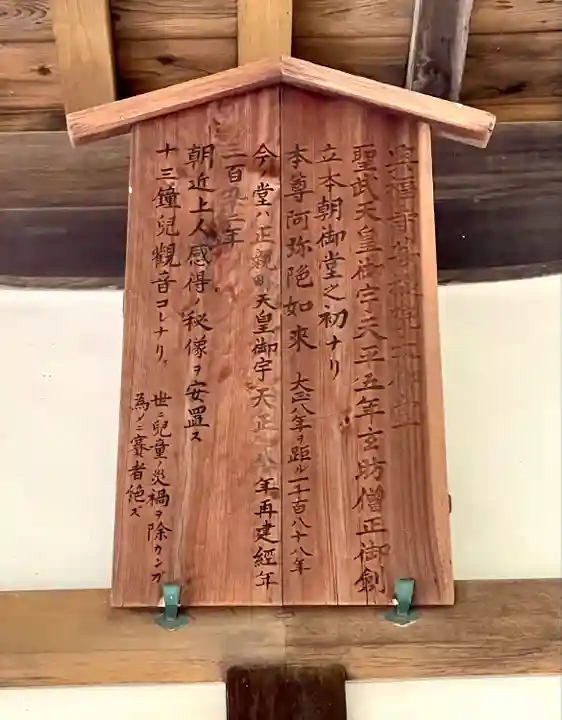 興福寺菩提院大御堂
聖武天皇御宇天平五年玄昉僧正御創
立本朝御堂之初ナリ
本尊阿弥陀如來 大正八年ヲ距ル一千百八十八年
今ノ堂ハ正親町天皇御宇天正八年再建経年
三百四十年
朝近上人感得ノ秘像ヲ安置ス
十三鐘兒觀音コレナリ
世ニ兒童ノ災禍ヲ除カンガ
為メニ賽者絶ズ